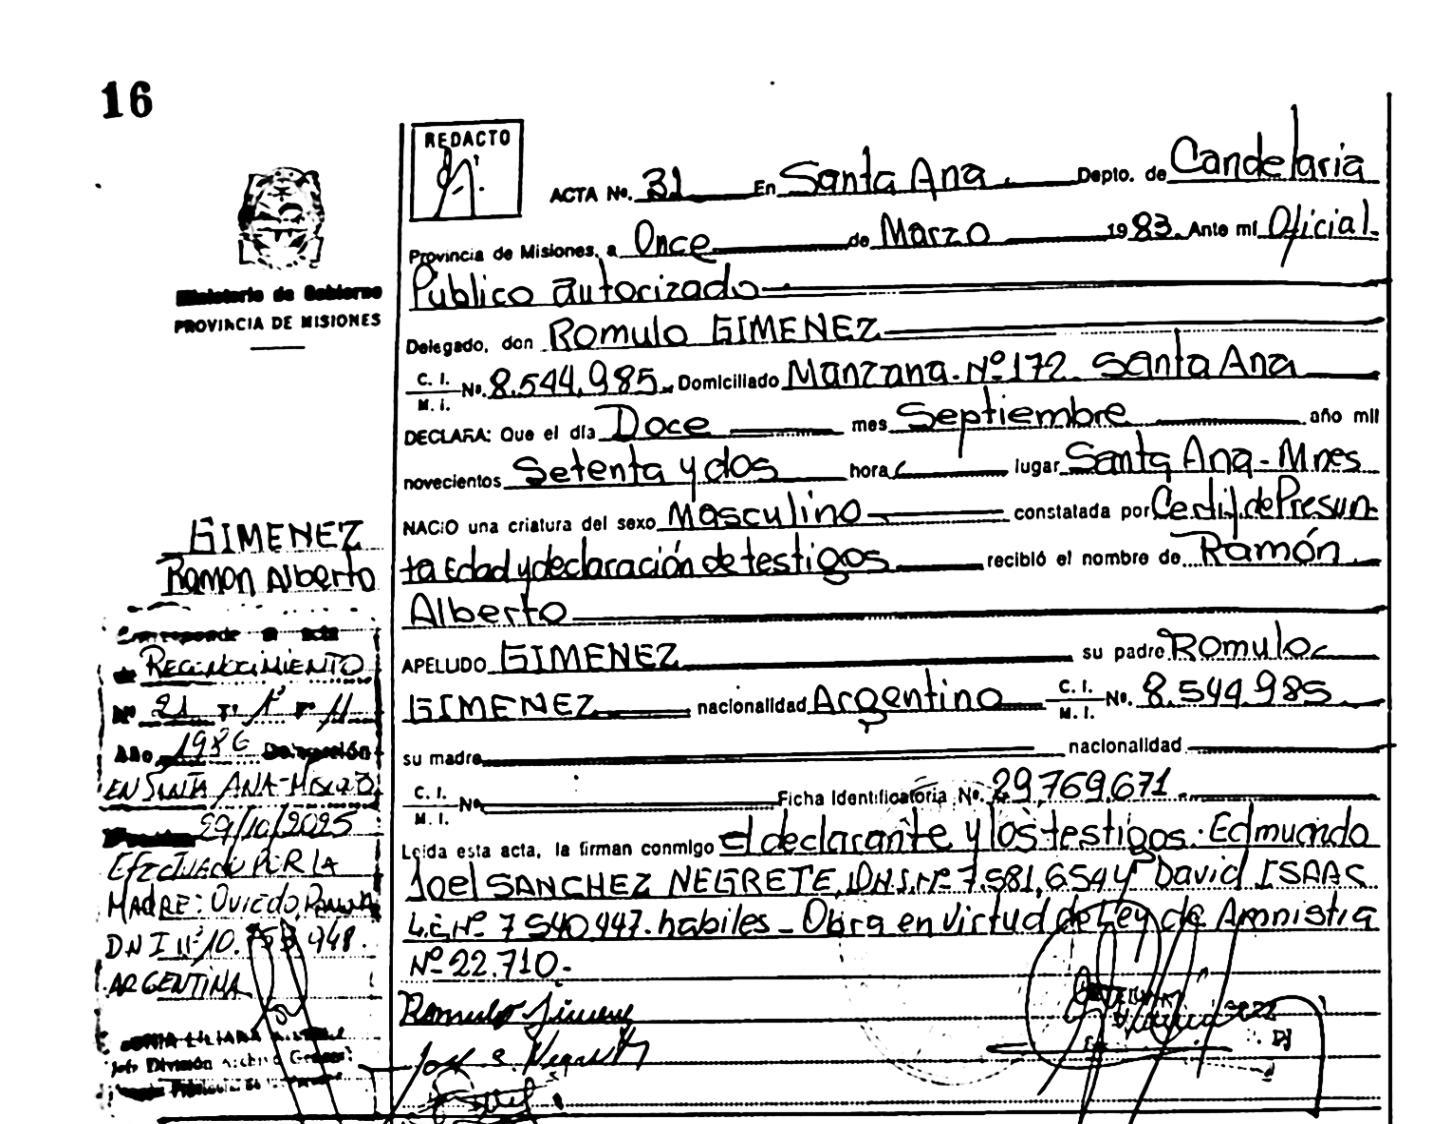 16
REDACTO
ACTA No. 31 En Santa Ana. Depto. de Candelaria
Provincia de Misiones, a Once de Marzo 1983. Ante mí Oficial.
Público autorizado
Delegado, don ROMULO GIMENEZ
C. I. M. I. No. 8.544.985. Domiciliado Manzana. Nº 172. Santa Ana
DECLARA: Que el día Doce mes Septiembre año mil
novecientos Setenta y dos hora lugar Santa Ana - Mnes
NACIO una criatura del sexo Masculino constatada por Certif. de Presun
ta Edad y declaración de testigos recibió el nombre de Ramón
Alberto
APELLIDO GIMENEZ su padre Romulo
GIMENEZ nacionalidad Argentino C. I. M. I. No. 8.544.985
su madre nacionalidad
C. I. M. I. No. Ficha Identificatoria No. 29.769.671.
Leída esta acta, la firman conmigo el declarante y los testigos: Edmundo
Joel SANCHEZ NEGRETE, D.N.I. Nº 7.581.654 y David ISAAC
L.E. Nº 7.540.447. habiles - Obra en virtud de Ley de Amnistia
Nº 22.710.-
Romulo Gimenez
Ministerio de Gobierno
PROVINCIA DE MISIONES
GIMENEZ
Ramon Alberto
Corresponde al acta
de RECONOCIMIENTO
Nº 21 Tº 1º Fº 11
Año 1986 Delegación
EN SANTA ANA-
29/10/2025
EFECTUADO POR LA
MADRE: OVIEDO,
DNI Nº 10. 948.
ARGENTINA
LILIANA
División